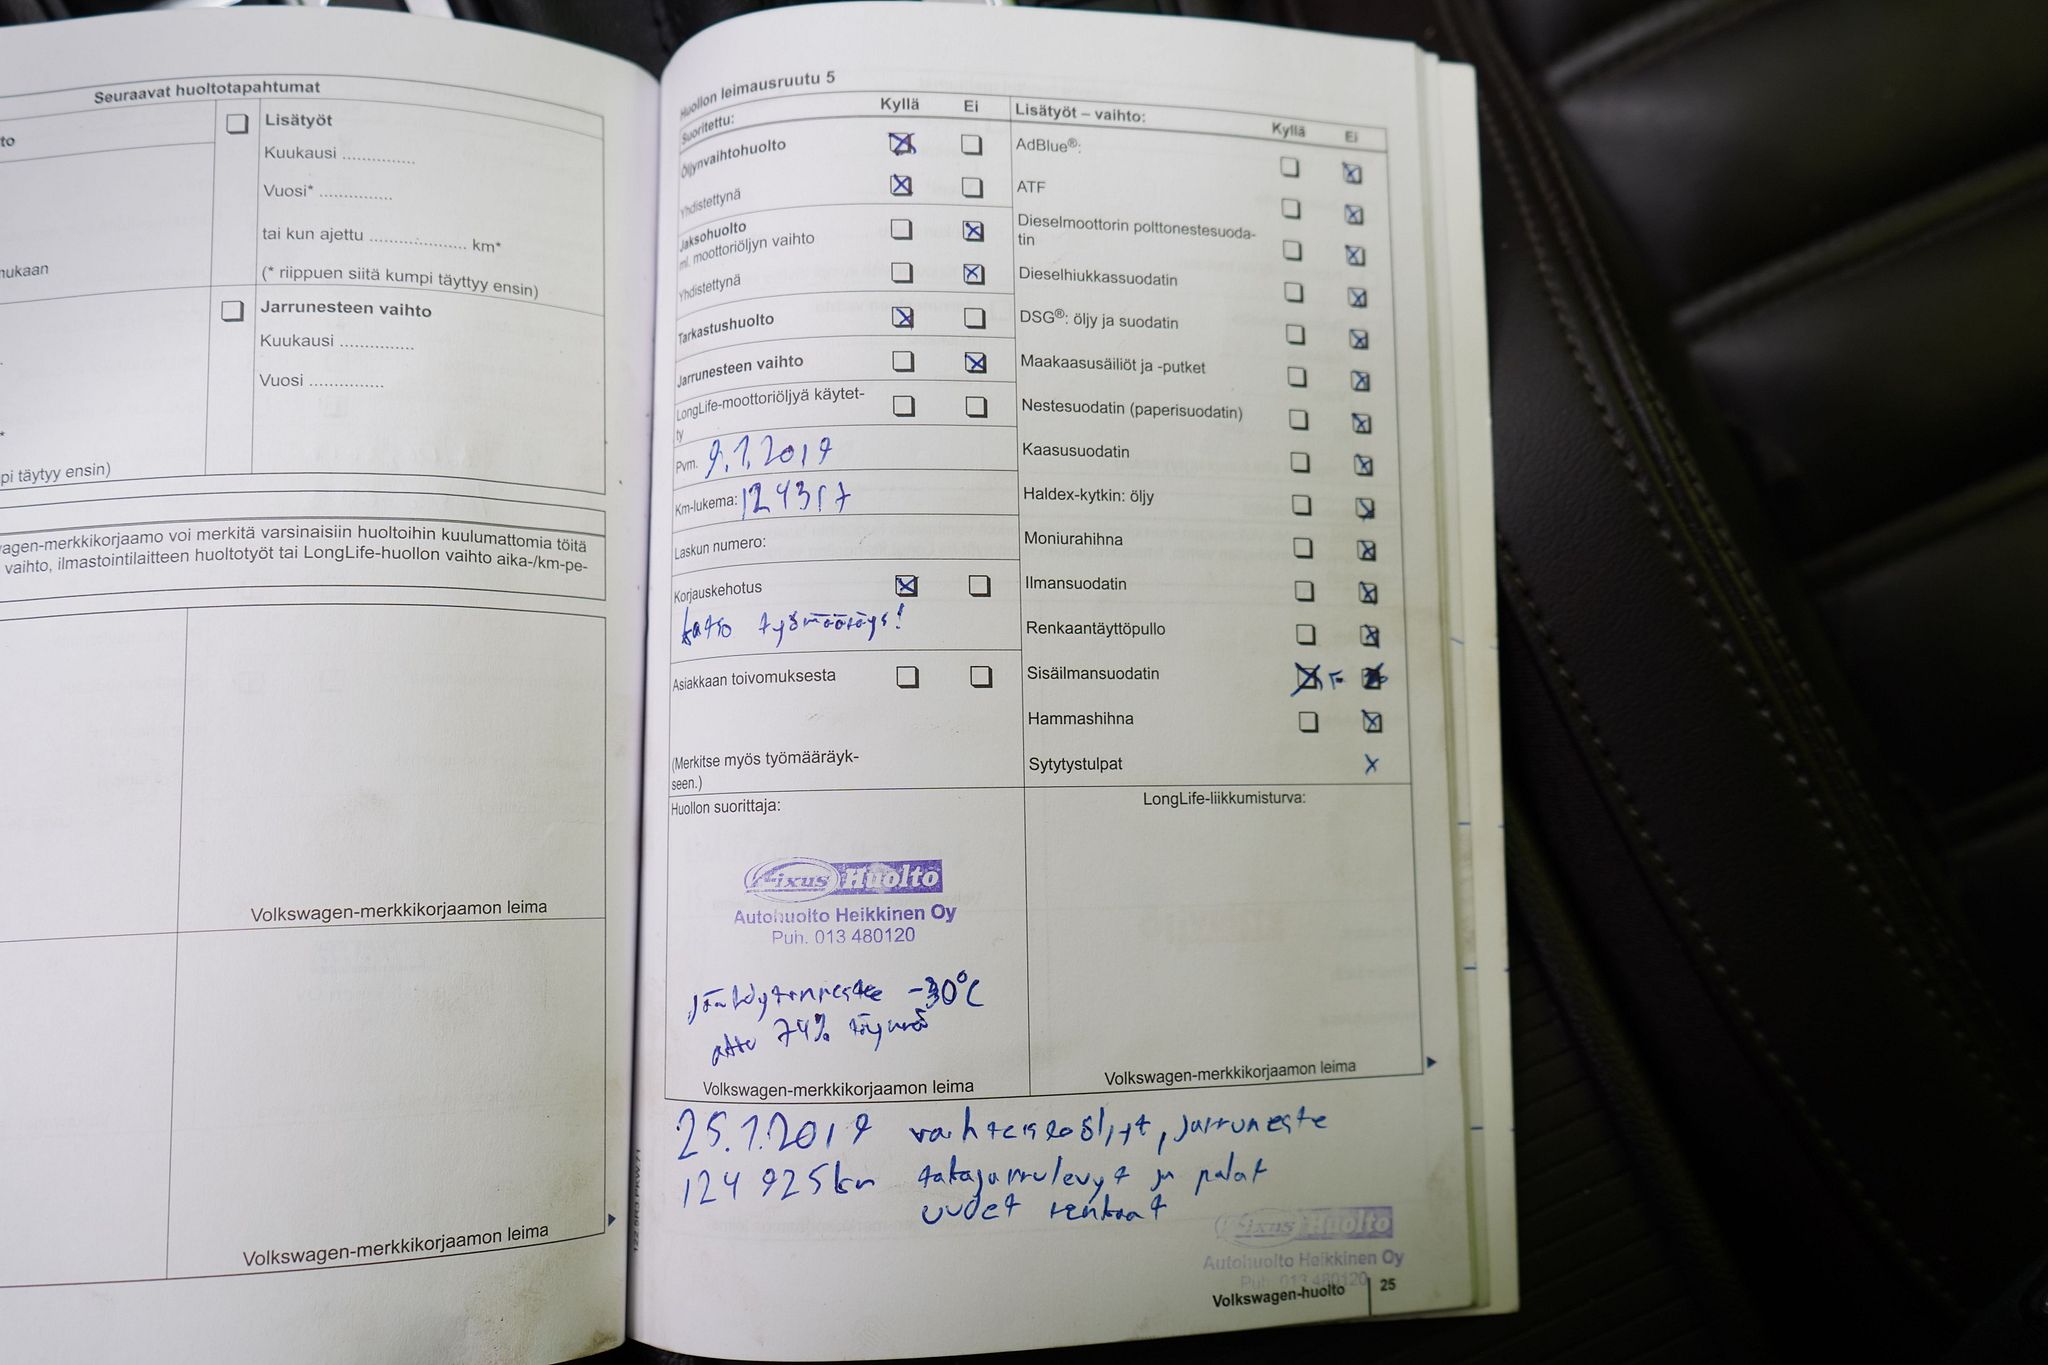 Seuraavat huoltotapahtumat
to
Lisätyöt
Kuukausi ..............
Vuosi* ..............
tai kun ajettu ................... km*
mukaan
(* riippuen siitä kumpi täyttyy ensin)
Jarrunesteen vaihto
Kuukausi ..............
Vuosi ..............
*
pi täytyy ensin)
agen-merkkikorjaamo voi merkitä varsinaisiin huoltoihin kuulumattomia töitä
vaihto, ilmastointilaitteen huoltotyöt tai LongLife-huollon vaihto aika-/km-pe-
Volkswagen-merkkikorjaamon leima
Volkswagen-merkkikorjaamon leima
Huollon leimausruutu 5
Suoritettu: Kyllä Ei
Öljynvaihtohuolto
Yhdistettynä
Jaksohuolto
ml. moottoriöljyn vaihto
Yhdistettynä
Tarkastushuolto
Jarrunesteen vaihto
LongLife-moottoriöljyä käytet-
ty
Pvm. 9.1.2019
Km-lukema: 124317
Laskun numero:
Korjauskehotus
katso työmääräys!
Asiakkaan toivomuksesta
(Merkitse myös työmääräyk-
seen.)
Lisätyöt – vaihto: Kyllä Ei
AdBlue®:
ATF
Dieselmoottorin polttonestesuoda-
tin
Dieselhiukkassuodatin
DSG®: öljy ja suodatin
Maakaasusäiliöt ja -putket
Nestesuodatin (paperisuodatin)
Kaasusuodatin
Haldex-kytkin: öljy
Moniurahihna
Ilmansuodatin
Renkaantäyttöpullo
Sisäilmansuodatin
Hammashihna
Sytytystulpat
Huollon suorittaja:
Fixus Huolto
Autohuolto Heikkinen Oy
Puh. 013 480120
Jäähdytinneste -30°C
akku 74% täynnä
Volkswagen-merkkikorjaamon leima
LongLife-liikkumisturva:
Volkswagen-merkkikorjaamon leima
25.1.2019 vaihteistoöljyt, jarruneste
124 925km takajarrulevyt ja palat
uudet renkaat
Fixus Huolto
Autohuolto Heikkinen Oy
Puh. 013 480120
Volkswagen-huolto 25